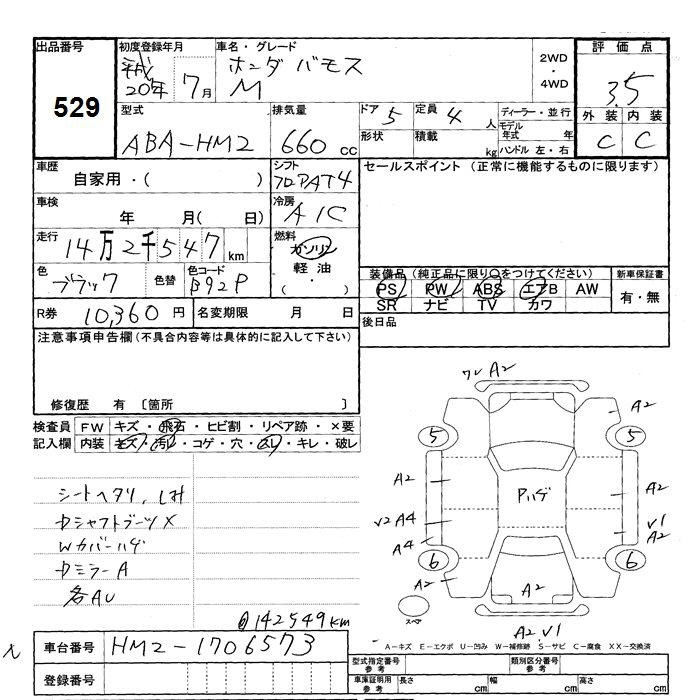 出品番号 529
初度登録年月 平成20年 7月
車名・グレード ホンダ バモス M
2WD ・ 4WD
評価点 3.5
外装 内装
C C
型式 ABA-HM2
排気量 660 cc
ドア 5
定員 4 人
形状 積載 kg
ディーラー・並行
モデル年式 年
ハンドル 左・右
車歴 自家用・( )
シフト フロアAT4
セールスポイント (正常に機能するものに限ります)
車検 年 月( 日)
冷房 A/C
走行 14万2千547km
燃料 ガソリン
軽油
( ・ )
色 ブラック
色替
色コード B92P
装備品 (純正品に限り○をつけてください)
PS PW ABS エアB AW
SR ナビ TV カワ
新車保証書
有・無
R券 10,360 円
名変期限 月 日
後日品
注意事項申告欄(不具合内容等は具体的に記入して下さい)
修復歴 有 〔箇所 〕
検査員 FW キズ・飛石・ヒビ割・リペア跡・×要
記入欄 内装 キズ・汚レ・コゲ・穴・スレ・キレ・破レ
シートヘタリ,しみ
DシャフトブーツX
Wカバーハゲ
DミラーA
各AU
@142549km
ワレA2
A2
5 5
A2
Pハゲ
A2
V2 A4
V1
A2
A4
6 6
A2
A2
スペア
A2.V1
車台番号 HM2-1706573
登録番号
A－キズ E－エクボ U－凹み W－補修跡 S－サビ C－腐食 XX－交換済
型式指定番号 参考
類別区分番号 参考
車庫証明用 参考
長さ cm 幅 cm 高さ cm